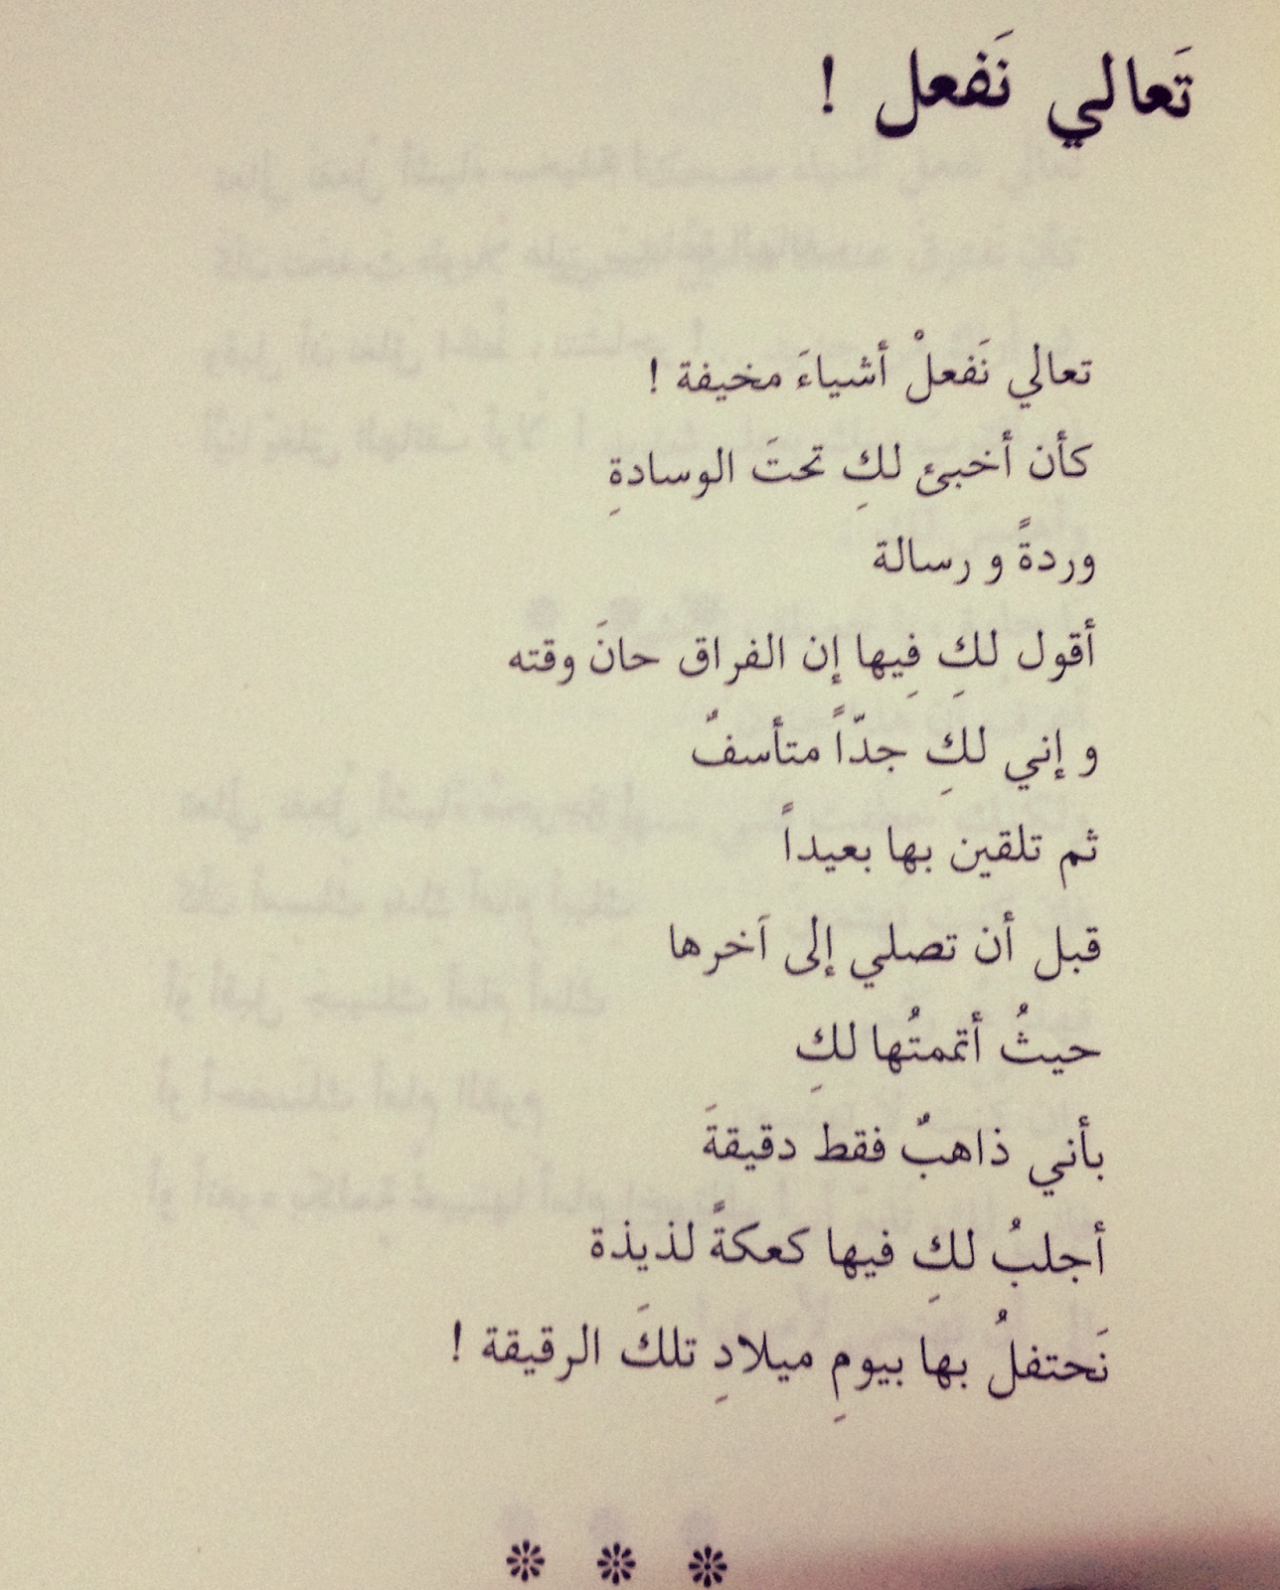 تَعالي نَفعل !
تعالي نَفعلْ أشياءَ مخيفة !
كأن أخبئ لكِ تحتَ الوسادةِ
وردةً و رسالة
أقول لكِ فِيها إن الفراق حانَ وقته
و إني لكِ جدّاً متأسفٌ
ثم تلقين بها بعيداً
قبل أن تصلي إلى آخرها
حيثُ أتممتُها لكِ
بأني ذاهبٌ فقط دقيقةَ
أجلبُ لكِ فيها كعكةً لذيذة
نَحتفلُ بها بيومِ ميلادِ تلكَ الرقيقة !